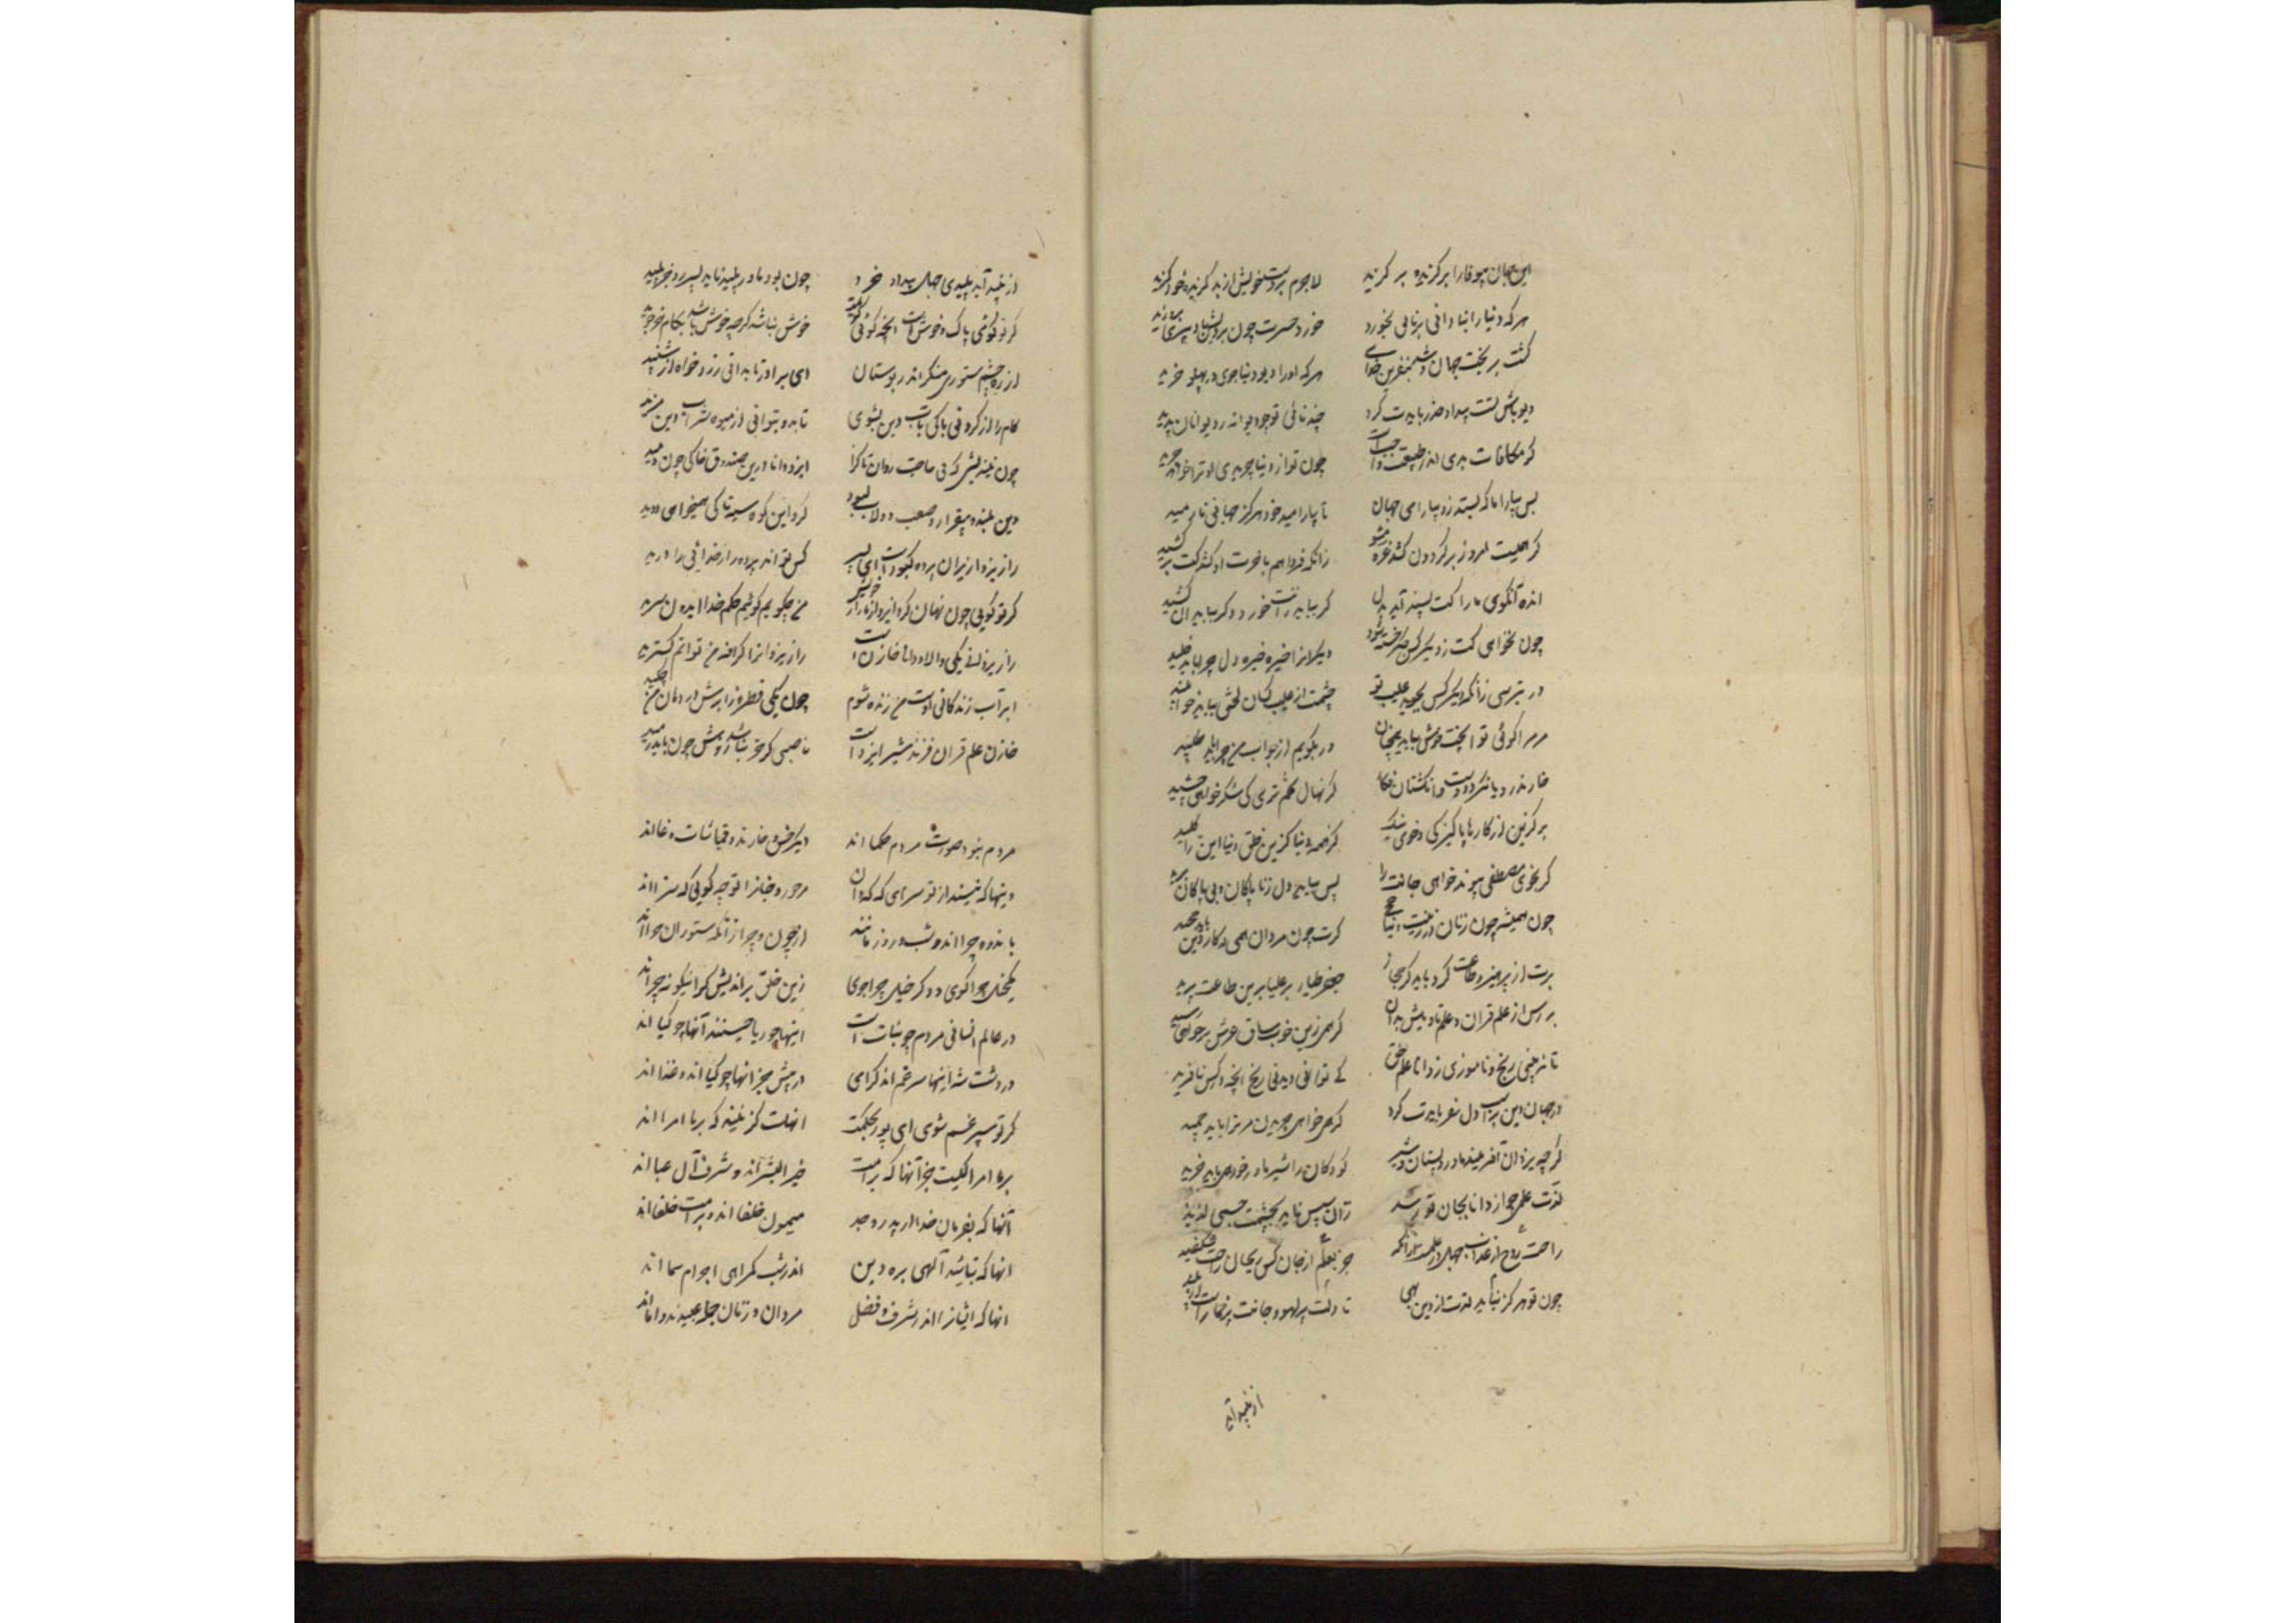 این جهان بیوفا را برگزیده بر گزید لاجرم بر دست خویش از بد گزیده خود گزید
هر که دنیا را بنادانی ببرنائی بخورد خورد حسرت چون برویش باد پیری بر وزید
گشت بر بخت جهان و شد بنفرین خدای هر که او را دیو دنیا جوی در پهلو خزید
دیو باش تست بیداد حذر بایدت کرد چند تائی تو چو دیوانه ز دیوانان پدید
گر مکافات بدی اندر طبیعت واجبست چون تو از دنیا چریدی او ترا خواهد چرید
بس بیاراما که بسته زو بیارامی جهان تا بیارامید خود هرگز جهانی نارمید
گر همیت امروز بر گردون کشد غره مشو زانکه فردا هم بآخرت او کشد کت بر کشید
انده آنگوی مارا کت پسند آید بدل گر بباید رانت خورد و گر بباید آن کشید
چون نخواهی کت ز دیگر کس جگر خسته شود دیگرانرا خیره خیره دل چرا باید خلید
ور بترسی زانکه دیگر کس بجوید عیب تو چشمت از عیب کسان لختی بباید خوابنید
مر مرا گوئی تو آنچت خوش نیاید همچنان ور بگویم از جواب من چرا باید طپید
خار مدرو تا نگردد دست و انگشتان فکار گز نهال تخم تری کی شکر خواهی چشید
بر گزین از کارها پاکیزگی و خوی نیک گز همه دنیا گزین خلق دنیا این گزید
گر بخوی مصطفی پیوند خواهی جانت را پس بباید دل ز ناپاکان و بی پاکان برید
چون همیشه چون زنان در زینت دنیا چخی گرت چون مردان همی در کار دین باید چخید
پرت از پرهیز و طاعت کرد باید کز حجاز جعفر طیار بر علیا بدین طاعت پرید
بر رس از علم قران و علم تاویلش بدان گر همی زین خوب ساق عرش بر خواهی رسید
تا نبینی رنج و ناموزی ز دانا علم حق کی توانی دید بی رنج آنچه در کس نافرید
در جهان دین بر اسب دل سفر بایدت کرد گر همی خواهی چریدن مر ترا باید چمید
گرچه یزدان آفریند مادر و پستان و شیر کودکان را شیر مادر خود همی باید مزید
لذت علمی چو از دانا بجان تو رسد زان سپس ناید بچشمت حسی لذیذ
راحت روح از عذاب جهل در علمست زانکه جز بعلم از جان کس ریحان راحت نشکفید
چون تو هرگز نباید لذت از دین بی تا دلت پر لهو و جانت پر خمار است
از نبید آید
از نبید آید پلیدی جهل پیدا خرد چون بود مادر پلید ناید پسر زو جز پلید
گر تو گوئی پاک و خوش است آنچه گوئی خوش نباشد گرچه خوش باشد بکام
از ره چشم ستوری منگر اندر بوستان ای برادر تا بدانی زرد خواه از شنبلید
کام را از کرد بی باکی بآب دین بشوی تا بدو بتوانی از میوه شراب دین مزید
چون نیندیشی که بی حاجت روان تا کرا ایزد دانا درین صندوق خاکی چون دمید
وین بلند و بیقرار و صعب دولاب کبود گرد این گوه سیه تا کی همی خواهد دوید
راز یزدانرا زبران پرده کبودست ای پسر کس تواند پرده راز خدائی را درید
گر تو گوئی چون نهان کرد ایزد از ما راز خویش من چگویم گوئیم حکم خدا ایدون سزید
راز یزدانی یکی والا و دانا خازنست راز یزدانرا گزافه من توانم گسترید
ابر آب زندگانی اوست من زنده شوم چون یکی قطره ز ابرش در دهان من چکید
خازن علم قران فرزند شیر ایزدست ناصبی کو خر نباشد زوش چون باید رمید
مردم نبود صورت مردم حکما اند دیگر خس و خارند و قماشات و دغا اند
وینها که نیستند از تو سزای که که دان مر حور و جنانرا تو چه گوئی که سزا اند
باندوه چرا اند و شب و روز بمانند از چون و چرا زانکه ستوران چرا اند
یکخیل چرا گوی و دگر خیل چرا جوی زین خلق براندیش که اینگونه چرا اند
در عالم انسانی مردم چو نباتست اینها چو ریاحینند آنها چو گیا اند
در دشت شد اینها سرغم اند گرامی در پیش خر آنها چو گیا اند و غذا اند
گر تو سپر غم شوی ای پور بحکمت آنهات گزینند که بر ما امرا اند
بر ما امرا کیست جز آنها که بر امت خیر البشرانند و شرف آل عبا اند
آنها که بفرمان خدا از پدر و جد میمون خلفا اند و بر امت خلفا اند
آنها که بتائید الهی بره دین اندر شب گمراهی اجرام سما اند
آنها که ایشانرا اندر شرف و فضل مردان و زنان جمله عبیدند و اما اند